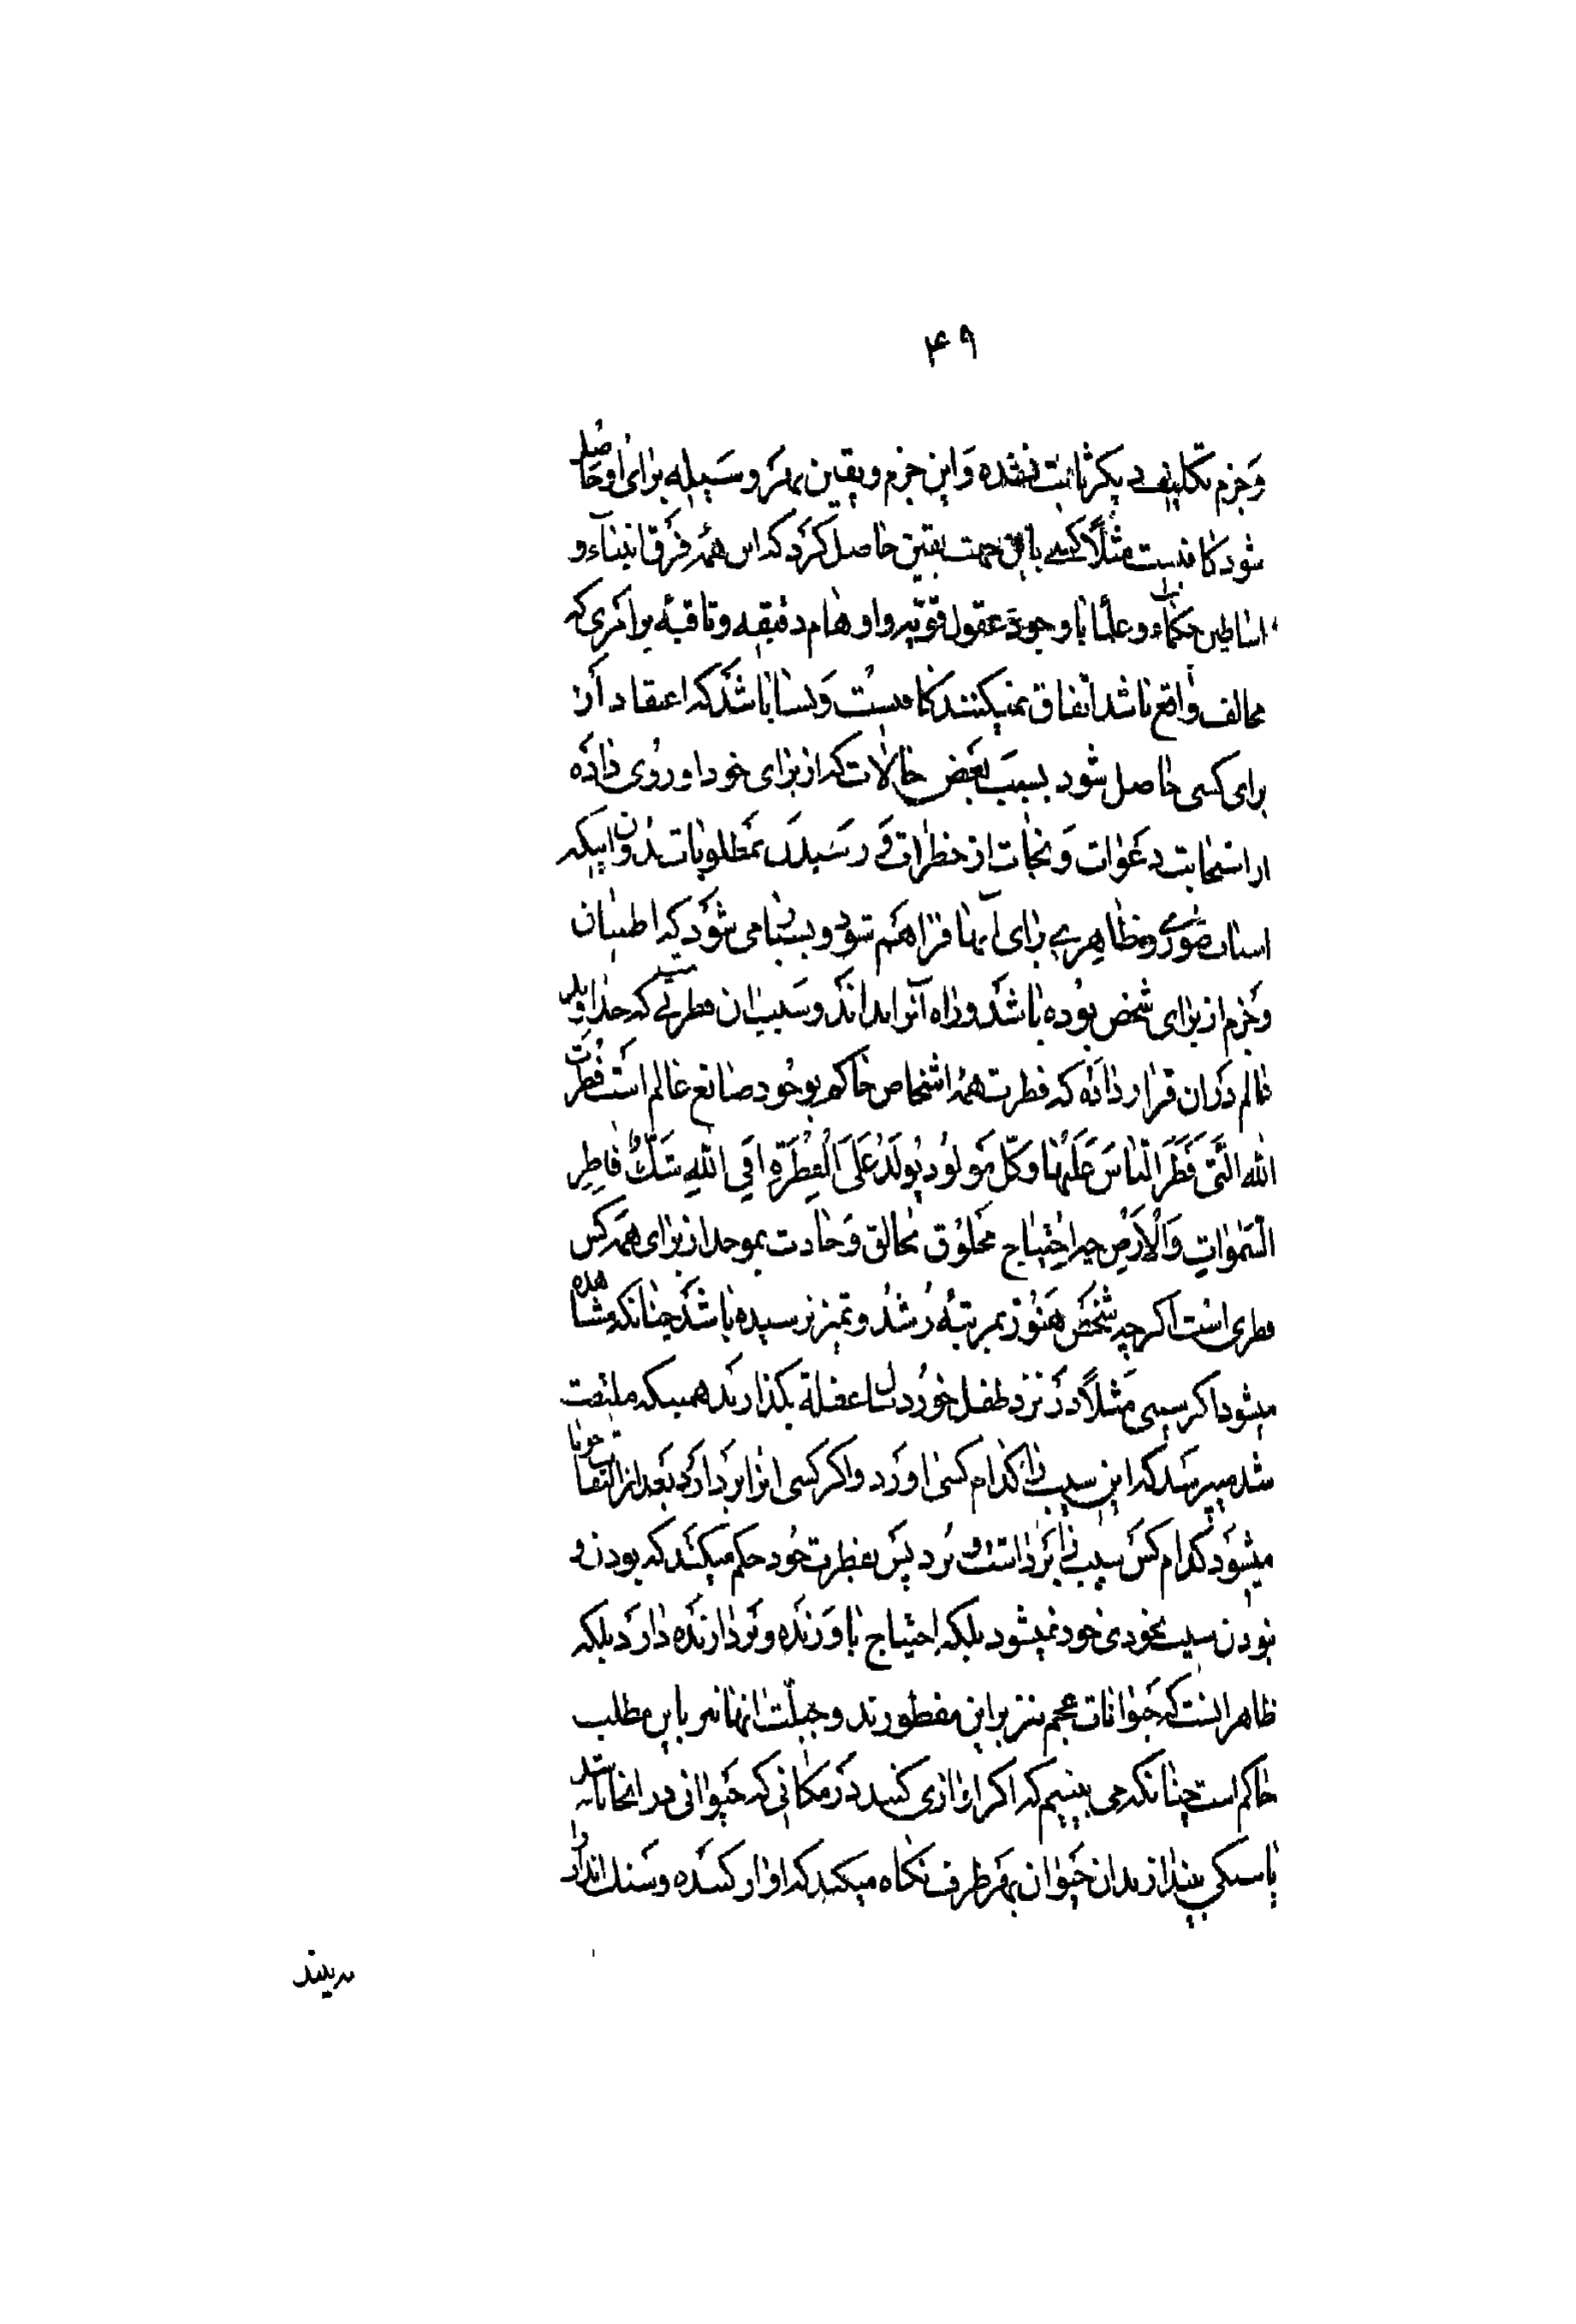 ۴۹
وجزم تکلیف دیکر ثابت نشده واین جزم ویقین بهر وسیله برای او حاصل
شود کافیست مثلاً کسی باین جهت یقین حاصل کرد که این همه فرق انبیآء و
اساطین حکمآء وعلما با وجود عقول قویّه واوهام دقیقه وثاقبه برامری که
مخالف واقع باشد اتفاق نمیکنند کافیست وبسا باشد که اعتقاد آن
برای کسی حاصل شود بسبب بعض حالات که از برای خود او روی داده
از استجابت دعوات ونجات از خطرات و رسیدن بمطلوبات بدون اینکه
اسباب صوری وظاهری برای آنها فراهم شود وبسا می شود که اطمینان
وجزم از برای شخص بوده باشد وراه آنرا نداند وسبب ان فطرتی که خداوند
عالم در ان قرار داده که فطرت همه اشخاص حاکم بوجود صانع عالم است فطرت
الله الَّتی فَطَرَ النّاسَ عَلَیْها وکلّ مَولُود یُولَدُ عَلَی الْفِطْرَةِ افی اللّهِ شَكٌّ فاطِرِ
السَّمٰواتِ وَالْاَرْضِ چه احتیاج مخلوق بخالق وحادث بموجد از برای همه کس
فطری است اکرچه شخص هنوز بمرتبهٔ رشد وتمیز نرسیده باشد چنانکه مشاهده
میشود اکر سیبی مثلاً در نزد طفل خوردسال غفلة بکذارند همینکه ملتفت
شد میپرسد که این سیب را کدام کس اورد واکر کسی انرا بردارد بعد از التفات جویا
میشود کدام کس سیب را برداشت و برد پس بفطرت خود حکم میکند که بودن و
نبودن سیب بخودی خود نمیشود بلکه احتیاج باورنده وبردارنده دارد بلکه
ظاهر انست که حیوانات عجم نیز براین مفطورند وجبلّت انها نیز باین مطلب
حاکم است چنانکه می بینیم که اکر اوازی کنید در مکانی که حیوانی در انجا باشد
یا سنکی بیندازید ان حیوان بهر طرف نکاه میکند که اواز کننده وسنك انداز را